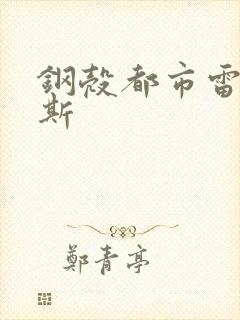 鋼殼都市雷
斯
鄭青亭